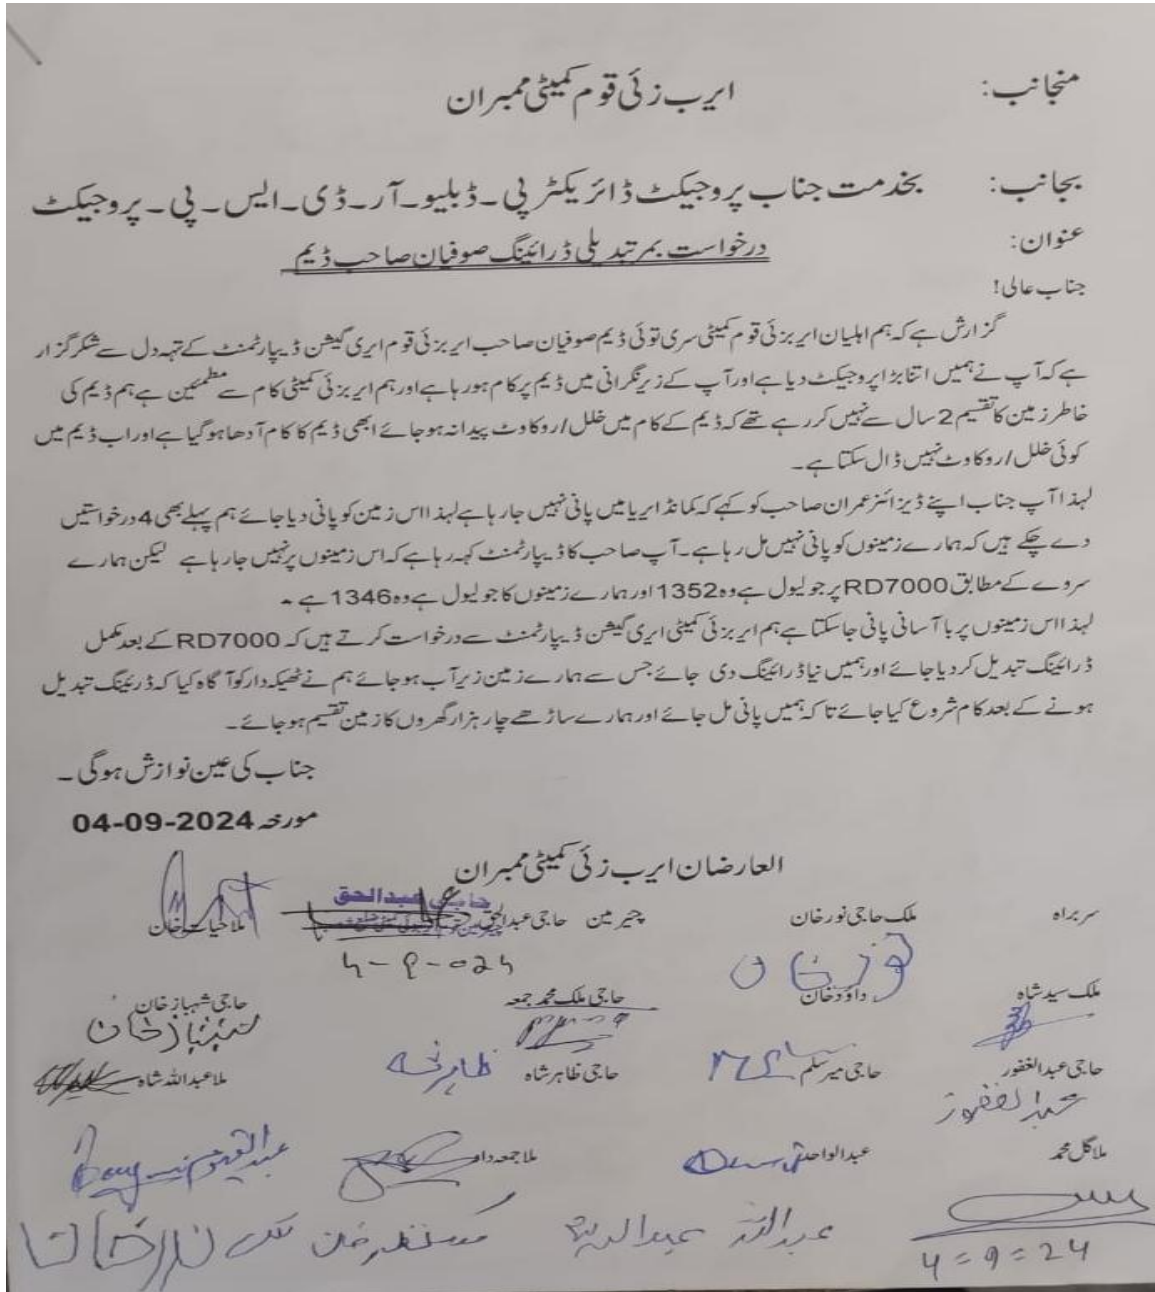 منجانب: ایرب زئی قوم کمیٹی ممبران
بجانب: بخدمت جناب پروجیکٹ ڈائریکٹر پی۔ڈبلیو۔آر۔ڈی۔ایس۔پی۔پروجیکٹ
عنوان: درخواست بمر تبدیلی ڈرائینگ صوفیان صاحب ڈیم
جناب عالی!
گزارش ہے کہ ہم اہلیان ایربزئی قوم کمیٹی سری توئی ڈیم صوفیان صاحب ایربزئی قوم ایری گیشن ڈیپارٹمنٹ کے تہہ دل سے شکر گزار
ہے کہ آپ نے ہمیں اتنا بڑا پروجیکٹ دیا ہے اور آپ کے زیر نگرانی میں ڈیم پر کام ہورہا ہے اور ہم ایربزئی کمیٹی کام سے مطمئین ہے ہم ڈیم کی
خاطر زمین کا تقسیم 2 سال سے نہیں کررہے تھے کہ ڈیم کے کام میں خلل/روکاوٹ پیدا نہ ہوجائے ابھی ڈیم کا کام آدھا ہوگیا ہے اور اب ڈیم میں
کوئی خلل/روکاوٹ نہیں ڈال سکتا ہے۔
لہذا آپ جناب اپنے ڈیزائنر عمران صاحب کو کہے کہ کمانڈ ایریا میں پانی نہیں جارہا ہے لہذا اس زمین کو پانی دیا جائے ہم پہلے بھی 4 درخواستیں
دے چکے ہیں کہ ہمارے زمینوں کو پانی نہیں مل رہا ہے۔ آپ صاحب کا ڈیپارٹمنٹ کہہ رہا ہے کہ اس زمینوں پر نہیں جارہا ہے لیکن ہمارے
سروے کے مطابق RD7000 پر جو لیول ہے وہ 1352 اور ہمارے زمینوں کا جو لیول ہے وہ 1346 ہے ۔
لہذا اس زمینوں پر با آسانی پانی جاسکتا ہے ہم ایربزئی کمیٹی ایری گیشن ڈیپارٹمنٹ سے درخواست کرتے ہیں کہ RD7000 کے بعد مکمل
ڈرائینگ تبدیل کردیا جائے اور ہمیں نیا ڈرائینگ دی جائے جس سے ہمارے زمین زیر آب ہوجائے ہم نے ٹھیکہ دار کو آگاہ کیا کہ ڈرئینگ تبدیل
ہونے کے بعد کام شروع کیا جائے تاکہ ہمیں پانی مل جائے اور ہمارے ساڑھے چار ہزار گھروں کا زمین تقسیم ہوجائے۔
جناب کی عین نوازش ہوگی۔
مورخہ 04-09-2024
العارضان ایرب زئی کمیٹی ممبران
حاجی عبدالحق
سربراہ ملک حاجی نور خان چئیرمین حاجی عبدالحق ملا حیات خان
4-9-024
نور خان
ملک سید شاہ داؤد خان حاجی ملک محمد جمعہ حاجی شہباز خان
شہباز خان
حاجی عبدالغفور حاجی میر سلم حاجی ظاہر شاہ ظاہر شاہ ملا عبداللہ شاہ
عبدالغفور
ملا گل محمد عبدالواحد ملا جمعہ داد عبدالقیوم
عبداللہ
4=9=24